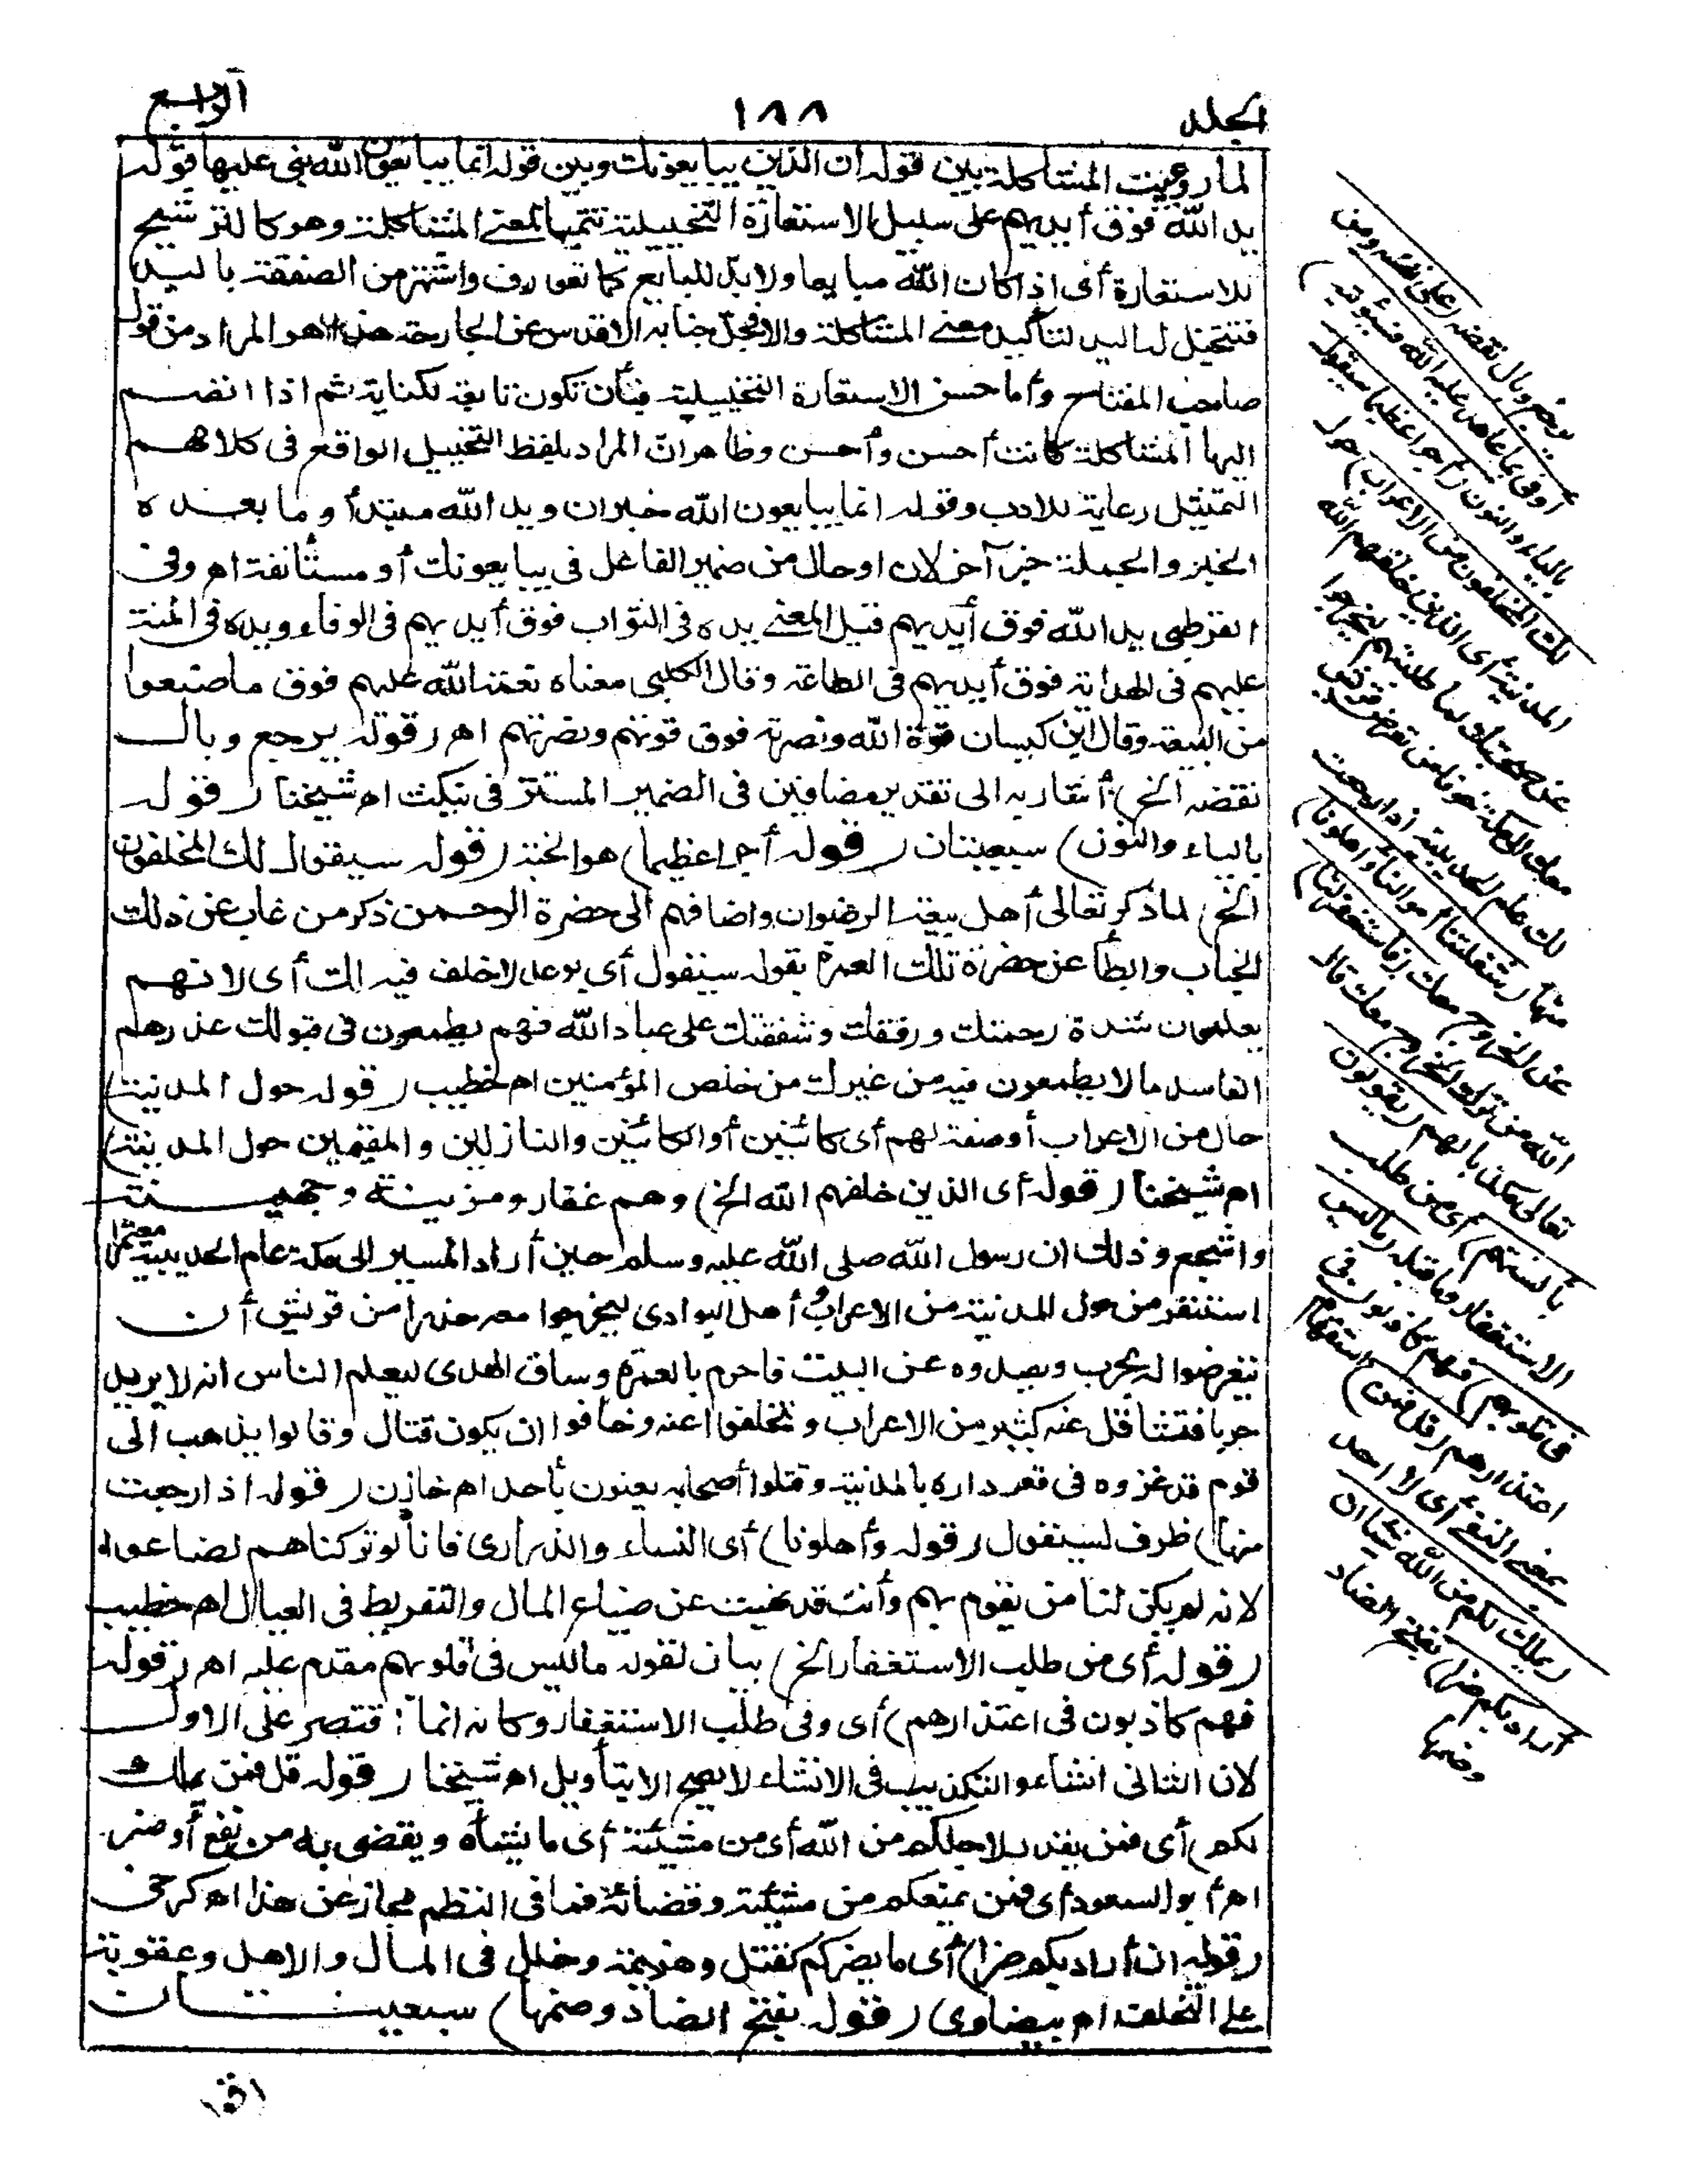 الجلد
١٨٨
الرابع
لما روعيت المشاكلة بين قوله ان الذين يبايعونك وبين قوله انما يبايعون الله بنى عليها قوله
يد الله فوق أيديهم على سبيل الاستعارة التخييلية تتميما لمعنى المشاكلة وهو كالترشيح
للاستعارة أى اذا كان الله مبايعا ولابد للبايع كما تعورف واشتهر من الصفقة باليد
فتتخيل له اليد لتأكيد معنى المشاكلة والا فجل جنابه الاقدس عن الجارحة هذا هو المراد من قول
صاحب المفتاح وأما حسن الاستعارة التخييلية فبأن تكون تابعة لكناية ثم اذا انضم
اليها المشاكلة كانت أحسن وأحسن وظاهر ان المراد بلفظ التخييل الواقع فى كلامهم
التمثيل رعاية للادب وقوله انما يبايعون الله خبر ان ويد الله مبتدأ وما بعده
الخبر والجملة خبر آخر لان او حال من ضمير الفاعل فى يبايعونك أو مستأنفة اهـ وفى
القرطبى يد الله فوق أيديهم قيل المعنى يده فى الثواب فوق أيديهم فى الوفاء ويده فى المنة
عليهم فى الهداية فوق أيديهم فى الطاعة وقال الكلبى معناه نعمة الله عليهم فوق ما صنعوا
من البيعة وقال ابن كيسان قوة الله ونصرته فوق قوتهم ونصرتهم اهـ (قوله يرجع وبال
نقضه الخ) أشار به الى تقدير مضافين فى الضمير المستتر فى ينكث اهـ شيخنا (قوله
بالياء والنون) سبعيتان (قوله أجرا عظيما) هو الجنة (قوله سيقول لك المخلفون
الخ) لما ذكر تعالى أهل بيعة الرضوان واضافهم الى حضرة الرحمن ذكر من غاب عن ذلك
الجناب وابطأ عن حضرة تلك العمرة بقوله سيقول أى بوعد لا خلف فيه لك أى لانهم
يعلمون شدة رحمتك ورفقك وشفقتك على عباد الله فهم يطمعون فى قبولك عذرهم
الفاسد ما لا يطمعون فيه من غيرك من خلص المؤمنين اهـ خطيب (قوله حول المدينة)
حال من الاعراب أو صفة لهم أى كائنين أو الكائنين والنازلين والمقيمين حول المدينة)
اهـ شيخنا (قوله أى الذين خلفهم الله الخ) وهم غفار ومزينة وجهينة
واشجع وذلك ان رسول الله صلى الله عليه وسلم حين أراد المسير الى مكة عام الحديبية معتمرا
استنفر من حول المدينة من الاعراب وأهل البوادى ليخرجوا معه حذرا من قريش أن
يتعرضوا له بحرب ويصدوه عن البيت فاحرم بالعمرة وساق الهدى ليعلم الناس انه لا يريد
حربا فتثاقل عنه كثير من الاعراب وتخلفوا عنه وخافوا ان يكون قتال وقالوا يذهب الى
قوم قد غزوه فى قعر داره بالمدينة وقتلوا أصحابه يعنون بأحد اهـ خازن (قوله اذا رجعت
منها) ظرف لسيقول (قوله وأهلونا) أى النساء والذرارى فانا لو تركناهم لضاعوا
لانه لم يكن لنا من يقوم بهم وأنت قد نهيت عن ضياع المال والتفريط فى العيال اهـ خطيب
(قوله أى من طلب الاستغفار الخ) بيان لقوله ما ليس فى قلوبهم مقدم عليه اهـ (قوله
فهم كاذبون فى اعتذارهم) أى وفى طلب الاستغفار وكانه انما اقتصر على الاول
لان الثانى انشاء والتكذيب فى الانشاء لا يصح الا بتأويل اهـ شيخنا (قوله قل فمن يملك
لكم) أى فمن يقدر لاجلكم من الله أى من مشيئته أى ما يشاؤه ويقضى به من نفع أو ضر
اهـ أبو السعود أى فمن يمنعكم من مشيئته وقضائه فما فى النظم مجاز عن هذا اهـ كرخى
(قوله ان أراد بكم ضرا) أى ما يضركم كقتل وهزيمة وخلل فى المال والاهل وعقوبة
على التخلف اهـ بيضاوى (قوله بفتح الضاد وضمها) سبعيتان
يرجع وبال نقضه (على نفسه ومن
أوفى بما عاهد عليه الله فسيؤتيه)
بالياء والنون (أجرا عظيما سيقول
لك المخلفون من الاعراب) حول
المدينة أى الذين خلفهم الله
عن صحبتك لما طلبتهم ليخرجوا
معك الى مكة خوفا من تعرض قريش
لك عام الحديبية اذا رجعت
منها (شغلتنا أموالنا وأهلونا)
عن الخروج معك (فاستغفر لنا)
الله من ترك الخروج معك قال
تعالى مكذبا لهم (يقولون
بألسنتهم) أى من طلب
الاستغفار وما قبله (ما ليس
فى قلوبهم) فهم كاذبون فى
اعتذارهم (قل فمن) استفهام
بمعنى النفى أى لا أحد
(يملك لكم من الله شيئا ان
أراد بكم ضرا) بفتح الضاد
وضمها